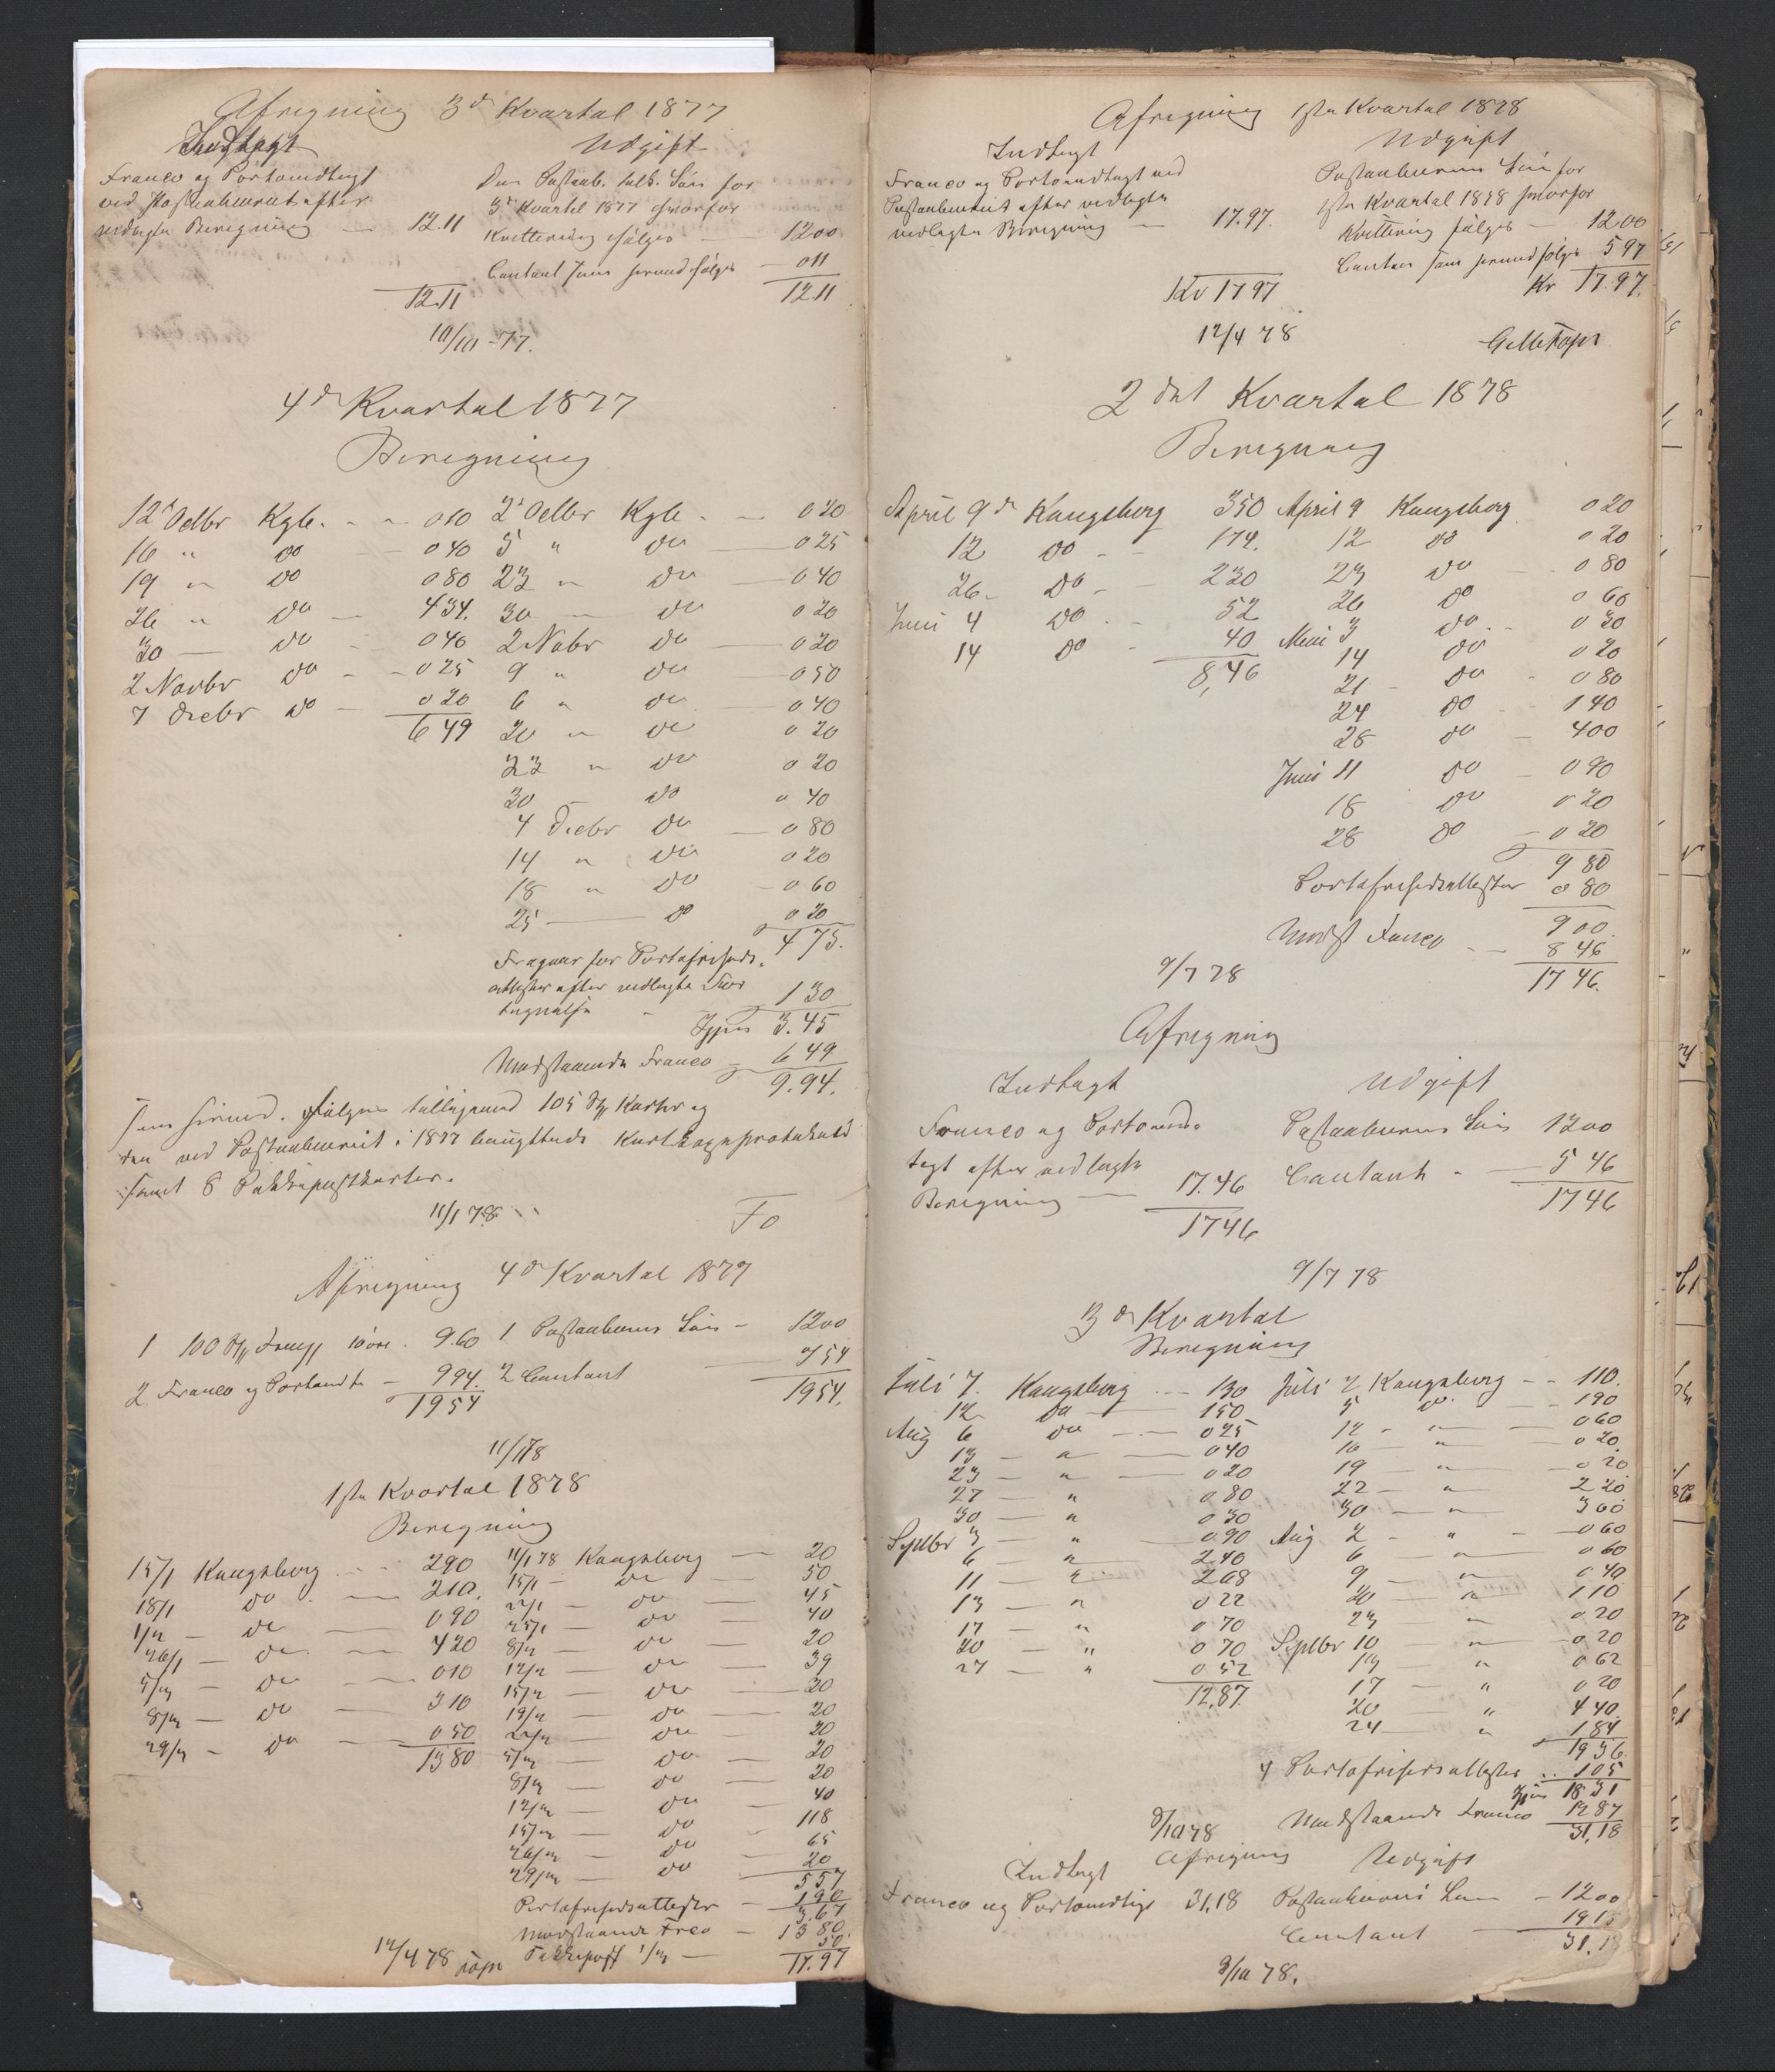 Afregning 3d Kvartal 1877
Indtægt
Franco og Portoindtægt
ved Postaabneriet efter
vedlagte Beregning — 12.11
12.11
Udgift
Den Postaab. tilk. Løn for
3d Kvartal 1877 hvorfor
Kvittering følger — 1200
Contant som herved følger — 011
1211
10/10 - 77.
4d Kvartal 1877
Beregning
12d Octbr Kgb. - 010
16 " do - 040
19 " do 080
26 " do — 434.
30 — do - 040
2 Novbr do - 025
7 Decbr do — 020
649
2d Octbr Kgb. — 020
5 " do — 025
23 " do — 040
30 — do 020
2 Nobr do — 020
9 " do — 050
6 " do — 040
20 " do 020
23 " do 020
30 — do 040
4 Decbr do — 080
14 " do 020
18 " do - 060
25 — do 020
475.
Fragaar for Portofriheds-
attester efter vedlagte For
tegnelse - 130
Igjen 3.45
Modstaaende Franco — 649
9.94.
som herved følger tilligemed 105 St Karter og
den ved Postaabneriet i 1877 benyttede Karteringsprotokol
samt 8 Pakkepostkarter.
11/1 78
Fo
Afregning 4d Kvartal 1877
1 100 St Frmk 10 øre . 9.60
2 Franco og Portoindt. — 994.
1954
1 Postaaberens Løn — 1200
2 Contant — 754
1954.
11/1 78
1ste Kvartal 1878
Beregning
15/1 Kongsberg - 290
18/1 do — 210.
1/2 — do — 090
26/1 — do — 420
5/3 — do — 010
8/3 — do — 310
29/3 — do — 050
1380
11/1 78 Kongsberg — 20
15/1 — do — 50
22/1 — do — 45
25/1 — do — 40
8/2 — do — 20
12/2 — do — 39
15/2 — do — 20
19/2 — do — 20
22/2 — do — 20
5/3 — do — 20
8/3 — do — 20
12/3 — do — 40
15/3 — do - 118
26/3 — do — 65
29/3 — do — 20
557
Portofrihedsattester — 190
3.67
Modstaaende Frco — 1380.
Pakkepost 1/3 — 50
17.97
12/4 78
Afregning 1ste Kvartal 1878
Indtægt
Franco og Portoindtægt ved
Postaabneriet efter vedlagte
vedlagte Beregning — 17.97.
Kr 1797
Udgift
Postaaberens Løn for
1ste Kvartal 1878 hvorfor
Kvittering følger — 1200
Contan som herved følger 597
Kr 17.97.
12/4 78
2det Kvartal 1878
Beregning
April 9d Kongsberg 350
12 do - 174.
26 - do - 230
Juni 4 do - 52
14 do - 40
8,46
April 9 Kongsberg 020
12 do 020
23 do - 080
26 do 060
Mai 3 do - 030
14 do 020
21 - do - 080
24 do - 140
28 do — 400
Juni 11 do — 090
18 do 020
28 do — 020
980
Portofrihedsattester 080
900.
Modst Franco — 846
1746.
9/7 78
Afregning
Indtægt
Franco og Portoind-
tægt efter vedlagte
Beregning — 17.46
1746
Udgift
Postaaberens Løn 1200
Contant - — 546
1746
9/7 78
3d Kvartal
Beregning
Juli 7. Kongsberg — 130
12 do — 150
Aug 6 do — 025
13 — " — 040
23 — " — 020
27 — " 080
30 — " 030
Septbr 3 — " — 090
6 — " — 240
11 — " — 208
13 — " 022
17 — " 070
20 — " 070
27 — " 052
12,87
Juli 2 Kongsberg — 110.
5 do. — 190
12 - " — 060
16 — " — 020.
19 " — 020
22 — " — 220
30 — " — 300
Aug 2 - " - 060
6 — " — 060
9 — " — 040
20 — " 110
23 " — 020
Septbr 10 — " — 020
13 — " 062
17 — " 020
20 — " 440
24 — " 184
1936
4 Portofrihedsattester .. 105
Igjen 1831
Modstaaende Franco 1287
31,18
8/10 78
Afregning
Indtægt
Franco og Portoindtægt 31,18
Udgift
Postaaberens Løn — 1200
Contant — 1918
31,18
8/10 78.